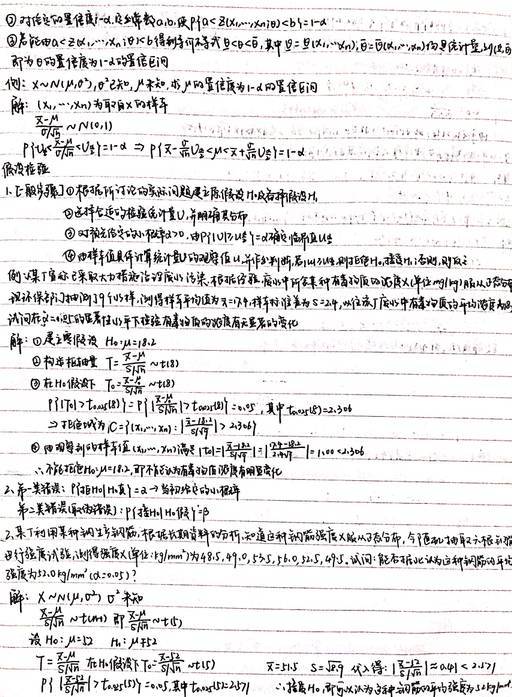 ② 对给定的置信度1-α,定出常数a,b,使P{a<Z(x₁,…,xₙ;θ)<b}=1-α
③ 若能由a<Z(x₁,…,xₙ;θ)<b得到等价不等式θ<θ<θ̄,其中θ=θ(x₁,…,xₙ),θ̄=θ̄(x₁,…,xₙ)均是统计量,
即为θ的置信度为1-α的置信区间
例:X~N(μ,σ²),σ²已知,μ未知,求μ的置信度为1-α的置信区间
解:(x₁,…,xₙ)为取自X的样本
x̄-μ/σ/√n ~ N(0,1)
=1-α ⇒ P{x̄-σ/√n Uα/2<μ<x̄+σ/√n Uα/2}=1-α
假设检验
1.[一般步骤] ① 根据所讨论的实际问题建立原假设H₀及备择假设H₁
② 选择合适的检验统计量U,并明确其分布
③ 对预先给定的小概率α>0,由P{|U|>Uα/2}=α确定临界值Uα/2
④ 由样本值具体计算统计量U的观察值u,并作出判断,若|u|>Uα/2,则拒绝H₀,接受H₁;否则,
例:某厂 采取大力措施治理废水污染,根据经验,废水中所含某种有毒物质的浓度X(单位mg/kg)服从正态分布
环保部门抽测了9个水样,测得样本平均值为x̄=17.4,样本标准差为s=2.4,以往该厂废水中有毒物质的平均浓度为18.2
试问在α=0.05的显著性水平下检验有毒物质的浓度有无显著的变化
解:① 建立原假设 H₀:μ=18.2
② 构造枢轴量 T=x̄-μ/S/√n ~ t(8)
③ 在H₀假设下 T₀=x̄-μ/S/√n ~ t(8)
P{|T₀|>t₀.₀₂₅(8)}=P{|x̄-μ/S/√n|>t₀.₀₂₅(8)}=0.05,其中t₀.₀₂₅(8)=2.306
⇒ 拒绝域为,C={(x₁,…,xₙ):|x̄-18.2/S/√9|>2.306}
④ 由得到的样本值(x₁,…,xₙ)满足|t₀|=|x̄-18.2/S/√9|=|17.4-18.2/2.4/√9|=1.00<2.306
∴不能拒绝H₀:μ=18.2,即不能认为有毒物质浓度有明显变化
2.第一类错误:P{拒H₀|H₀真}=α → 当初给定的小概率
第二类错误(取伪错误):P{接H₀|H₀假}=β
2.某厂利用某种钢生产钢筋,根据长期资料的分析,知道这种钢筋强度X服从正态分布,今随机抽取六根钢筋
进行强度试验,测得强度X(单位:kg/mm²)为48.5,49.0,53.5,56.0,52.5,49.5.试问:能否据此认为这种钢筋的平均
强度为52.0kg/mm²(α=0.05)?
解:X~N(μ,σ²) σ²未知
x̄-μ/S/√n ~ t(n-1) 即x̄-μ/S/√n ~ t(5)
设H₀:μ=52 H₁:μ≠52
T=x̄-μ/S/√n 在H₀假设下T₀=x̄-52/S/√n ~ t(5) x̄=51.5 S=√8.9 代入得:|x̄-52/S/√n|≈0.41<2.571
P{|x̄-52/S/√n|>t₀.₀₂₅(5)}=0.05,其中t₀.₀₂₅(5)=2.571 ∴接受H₀,即可以认为这种钢筋的平均强度为52kg/mm²